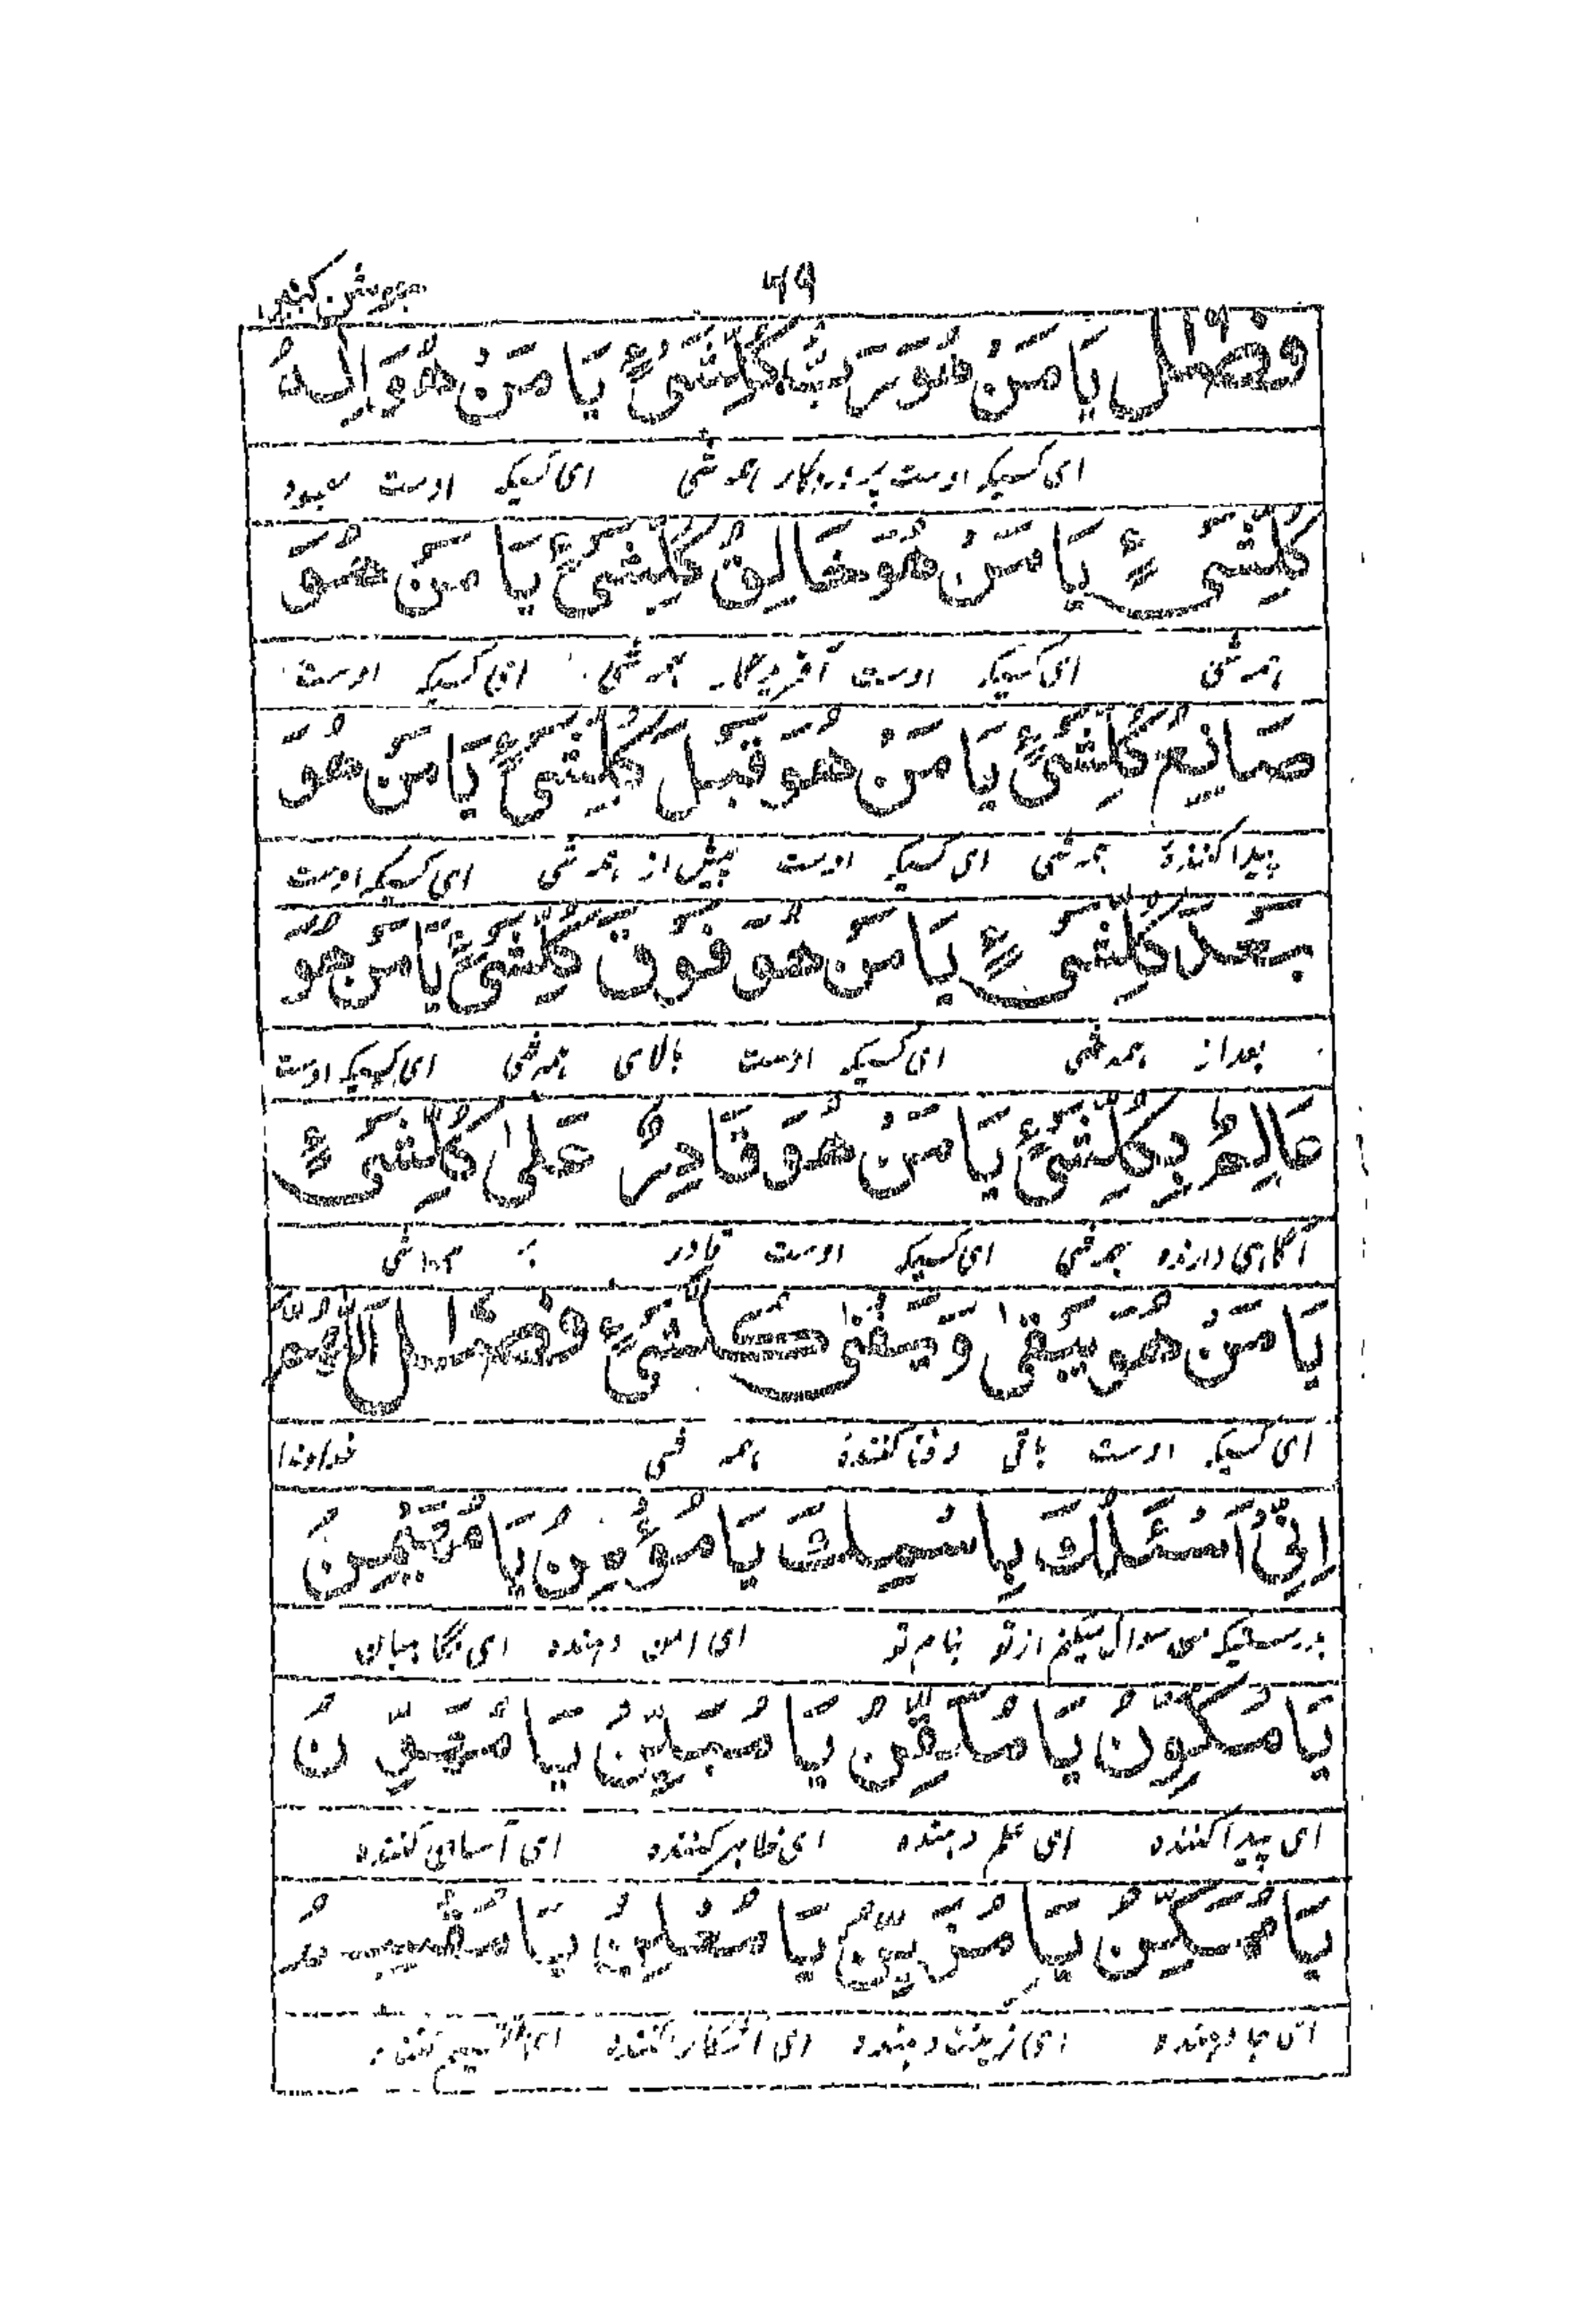 ۶۹ جوشن کبیر
فصل ۱۹ يَا مَنْ هُوَ رَبُّ كُلِّشَیْءٍ يَا مَنْ هُوَ اِلٰهُ
ای کسیکه اوست پروردگار همه شی ای کسیکه اوست معبود
كُلِّشَیْءٍ يَا مَنْ هُوَ خَالِقُ كُلِّشَیْءٍ يَا مَنْ هُوَ
همه شی ای کسیکه اوست آفریدگار همه شی ای کسیکه اوست
صَانِعُ كُلِّشَیْءٍ يَا مَنْ هُوَ قَبْلَ كُلِّشَیْءٍ يَا مَنْ هُوَ
پیدا کنندهٔ همه شی ای کسیکه اوست پیش از همه شی ای کسیکه اوست
بَعْدَ كُلِّشَیْءٍ يَا مَنْ هُوَ فَوْقَ كُلِّشَیْءٍ يَا مَنْ هُوَ
بعد از همه شی ای کسیکه اوست بالای همه شی ای کسیکه اوست
عَالِمٌ بِكُلِّشَیْءٍ يَا مَنْ هُوَ قَادِرٌ عَلٰى كُلِّشَیْءٍ
آگاهی دارنده بهمه شی ای کسیکه اوست قادر بر همه شی
يَا مَنْ هُوَ يَبْقٰى وَ يَفْنٰى كُلُّشَیْءٍ فصل اَللّٰهُمَّ
ای کسیکه اوست باقی و فنا کنندهٔ همه شی خداوندا
اِنِّیْ اَسْئَلُكَ بِاسْمِكَ يَا مُؤْمِنُ يَا مُهَيْمِنُ
بدرستیکه من سوال میکنم از تو بنام تو ای امن دهنده ای نگاهبان
يَا مُكَوِّنُ يَا مُلَقِّنُ يَا مُبَيِّنُ يَا مُهَوِّنُ
ای پیدا کننده ای علم دهنده ای ظاهر کننده ای آسانی کننده
يَا مُمَكِّنُ يَا مُزَيِّنُ يَا مُعْلِنُ يَا مُقَسِّمُ
ای جا دهنده ای زینت دهنده ای آشکار کننده ای تقسیم کننده